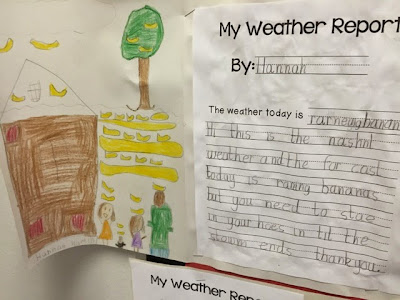 My Weather Report
By: Hannah
The weather today is raineing banan
Hi this is the nashnl
weather and the for cast
today is raning bananas
but you need to stae
in your hoes in til the
stourm ends thank you.
My Weather Repor